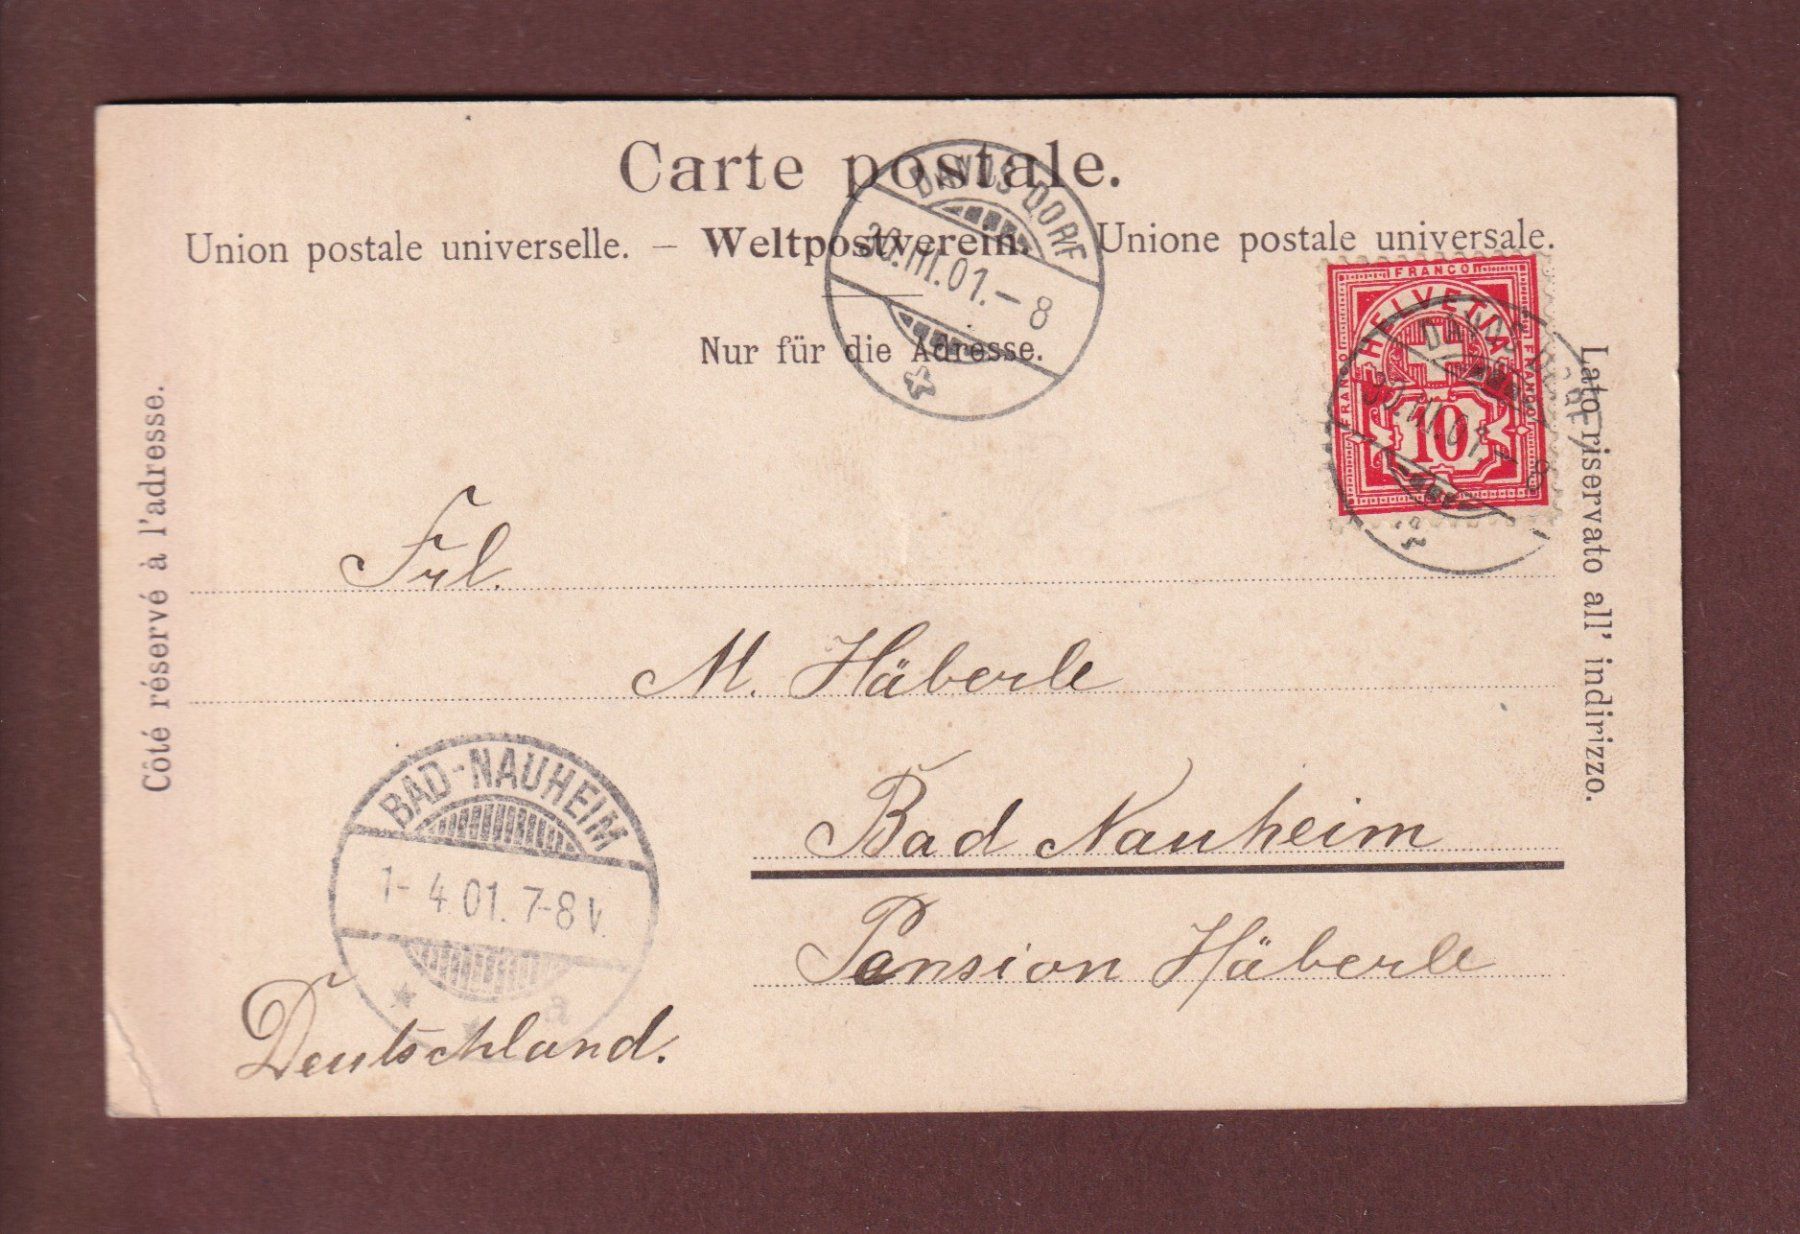 Carte postale.
Union postale universelle. – Weltpostverein. – Unione postale universale.
Nur für die Adresse.
DAVOS DORF
30.III.01.–8
FRANCO
HELVETIA
FRANCO
FRANCO
10
DAVOS DORF
30.III.01.–8
Côté réservé à l'adresse.
Lato riservato all' indirizzo.
Frl.
M. Häberle
Bad Nauheim
Pension Häberle
BAD-NAUHEIM
1-4.01.7-8V.
a
Deutschland.